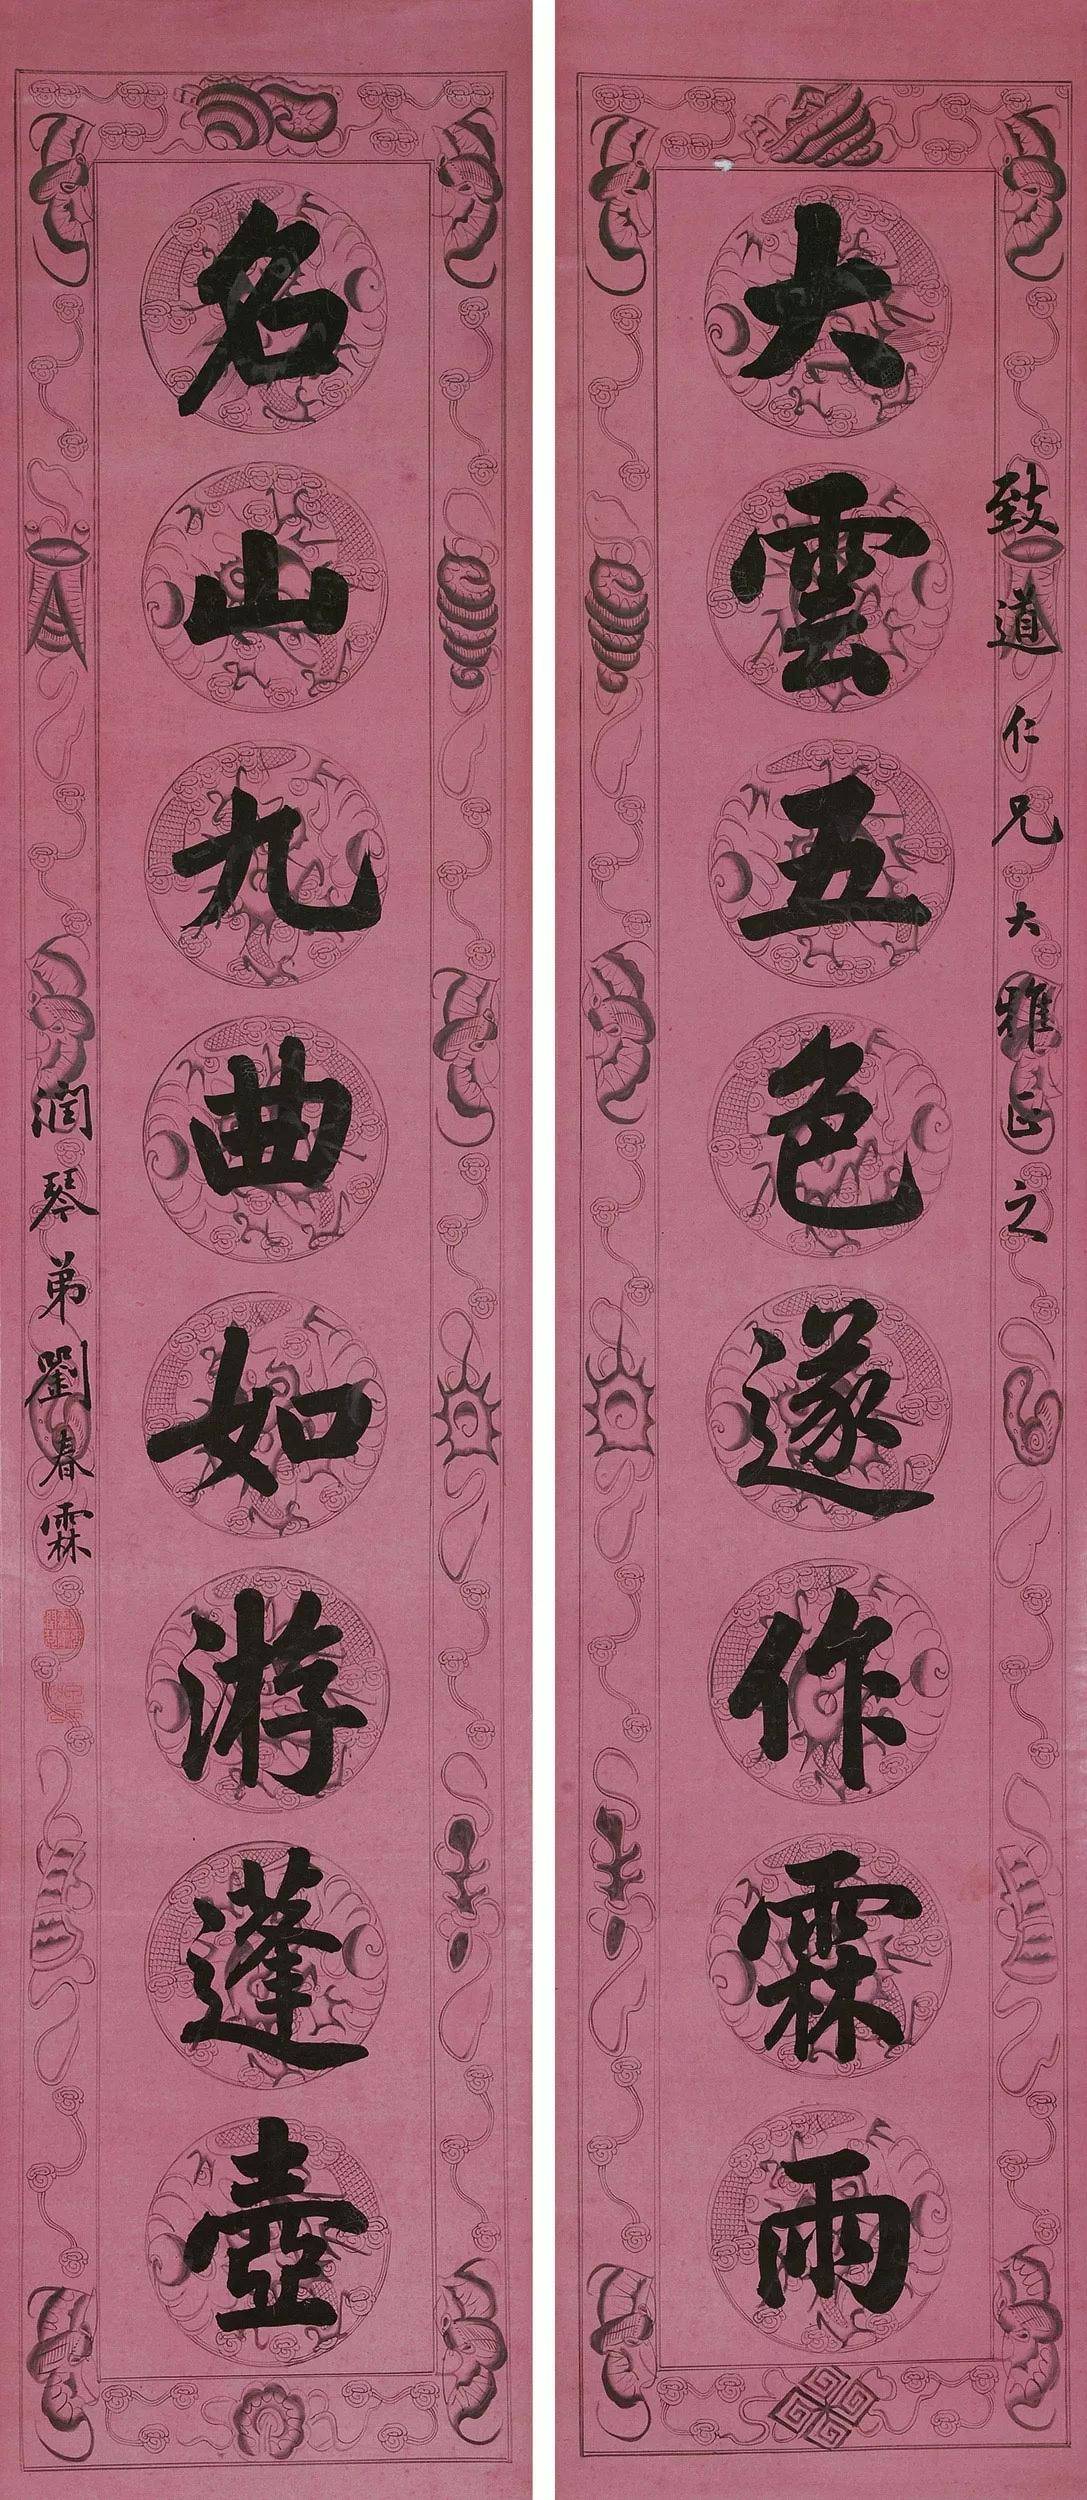 致道仁兄大雅正之
大雲五色遂作霖雨
名山九曲如游蓬壺
潤琴弟劉春霖